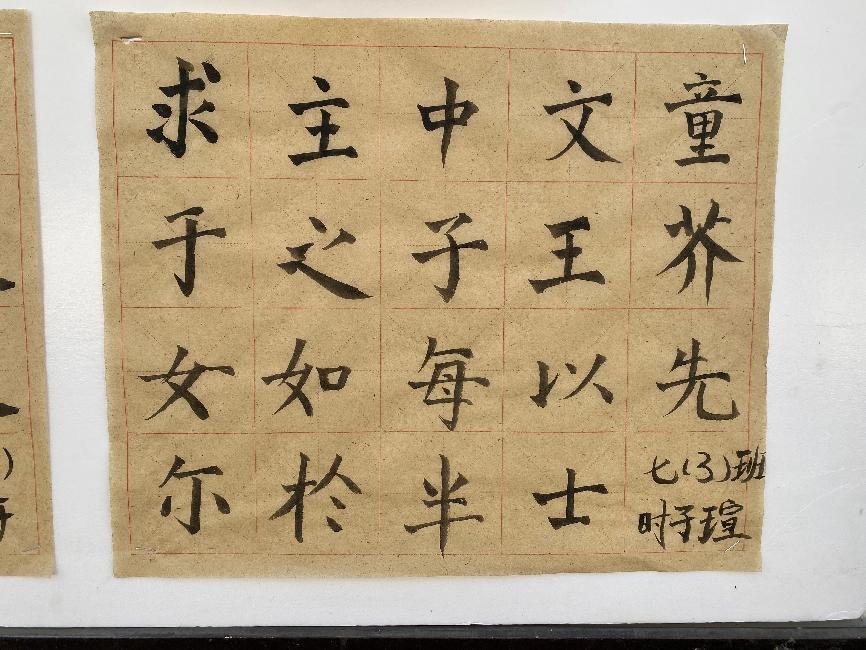 求主中文童
于之子王芥
女如每以先
尔於半士
七(3)班
时子瑄